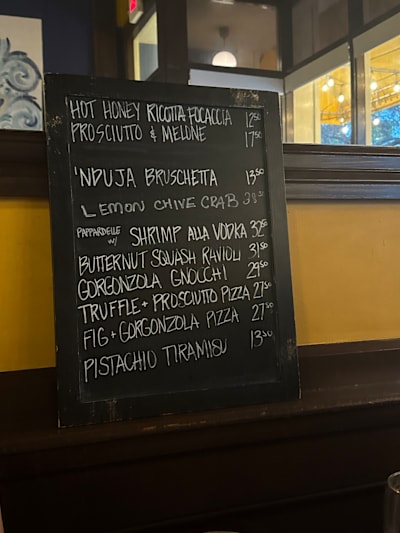 HOT HONEY RICOTTA FOCACCIA 12⁵⁰
PROSCIUTTO & MELONE 17⁵⁰
'NDUJA BRUSCHETTA 13⁵⁰
LEMON CHIVE CRAB
PAPPARDELLE W/ SHRIMP ALLA VODKA 32⁵⁰
BUTTERNUT SQUASH RAVIOLI 31⁵⁰
GORGONZOLA GNOCCHI 29⁵⁰
TRUFFLE + PROSCIUTTO PIZZA 27⁵⁰
FIG + GORGONZOLA PIZZA 27⁵⁰
PISTACHIO TIRAMISU 13⁵⁰